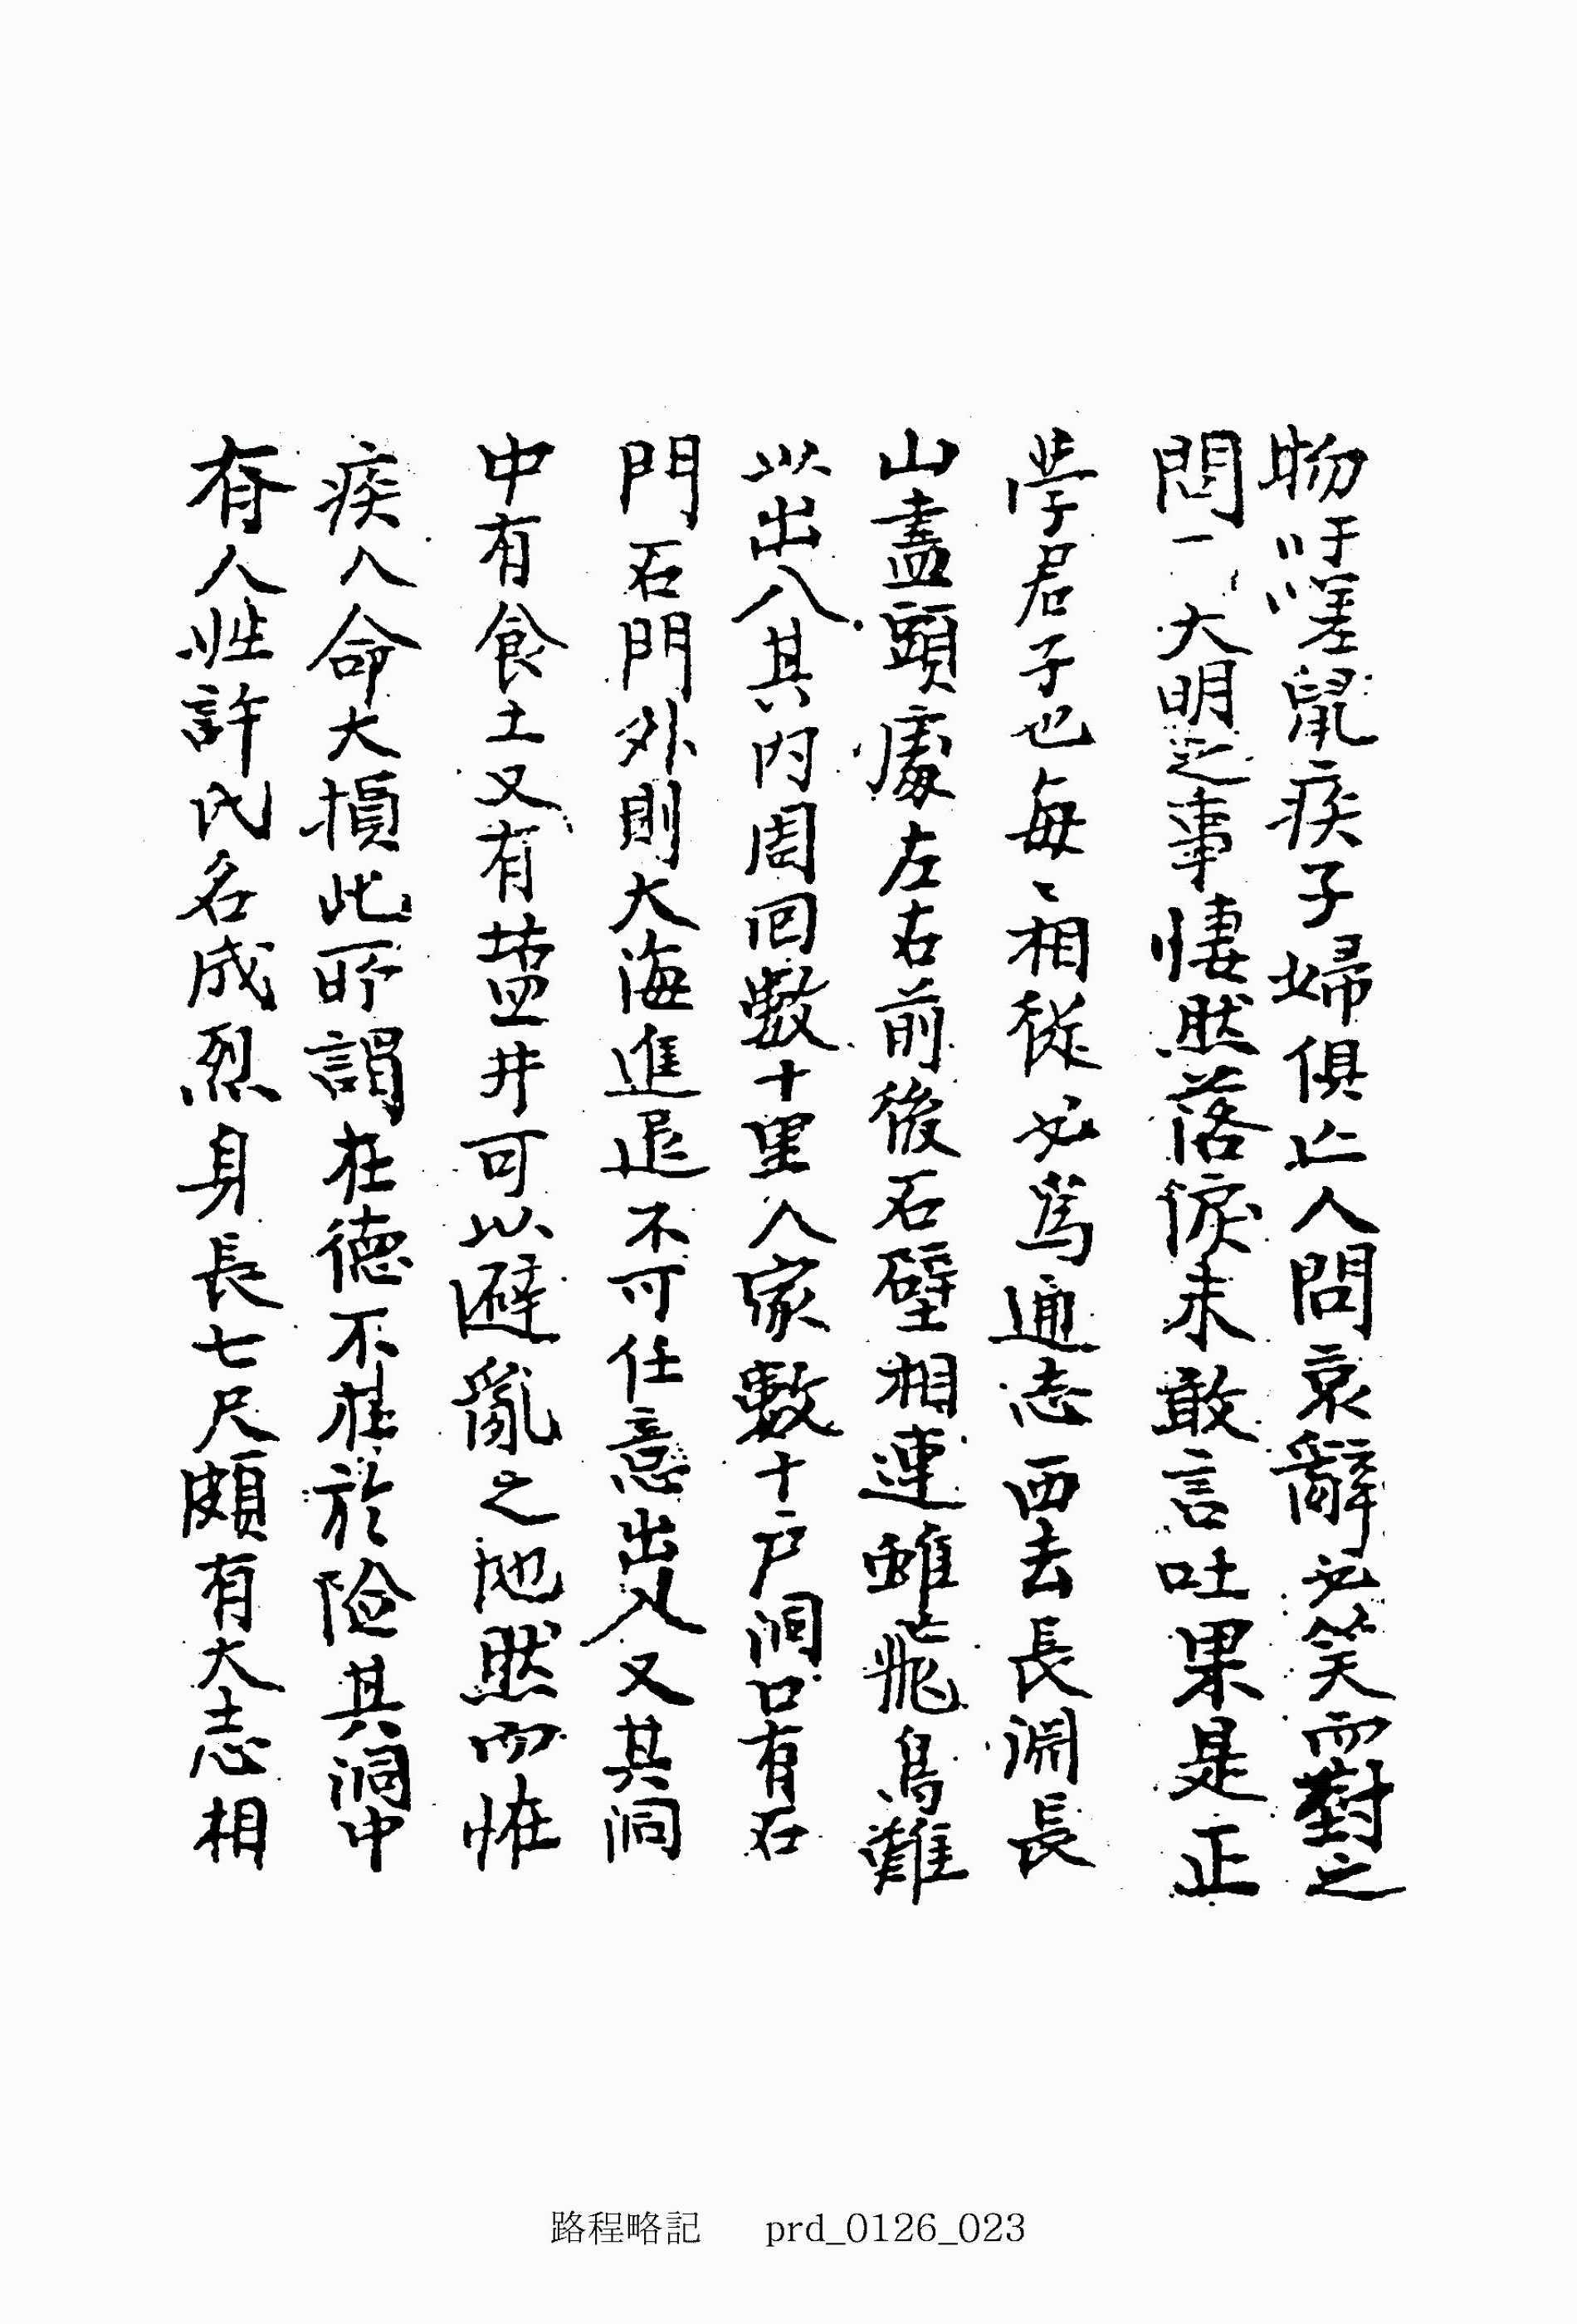 物吁嗟鼠疾子婦俱亡人問哀辭必笑而對之
問一大明之事悽然落淚未敢言吐果是正
學君子也每〻相從必爲通志西去長淵長
山盡頭處左右前後石壁相連雖飛鳥難
以出入其內周回數十里人家數十戶洞口有石
門石門外則大海進退不可任意出入又其洞
中有食土又有塩井可以避亂之地然而惟
疾人命大損此所謂在德不在於險其洞中
有人姓許氏名成烈身長七尺頗有大志相
路程略記 prd_0126_023